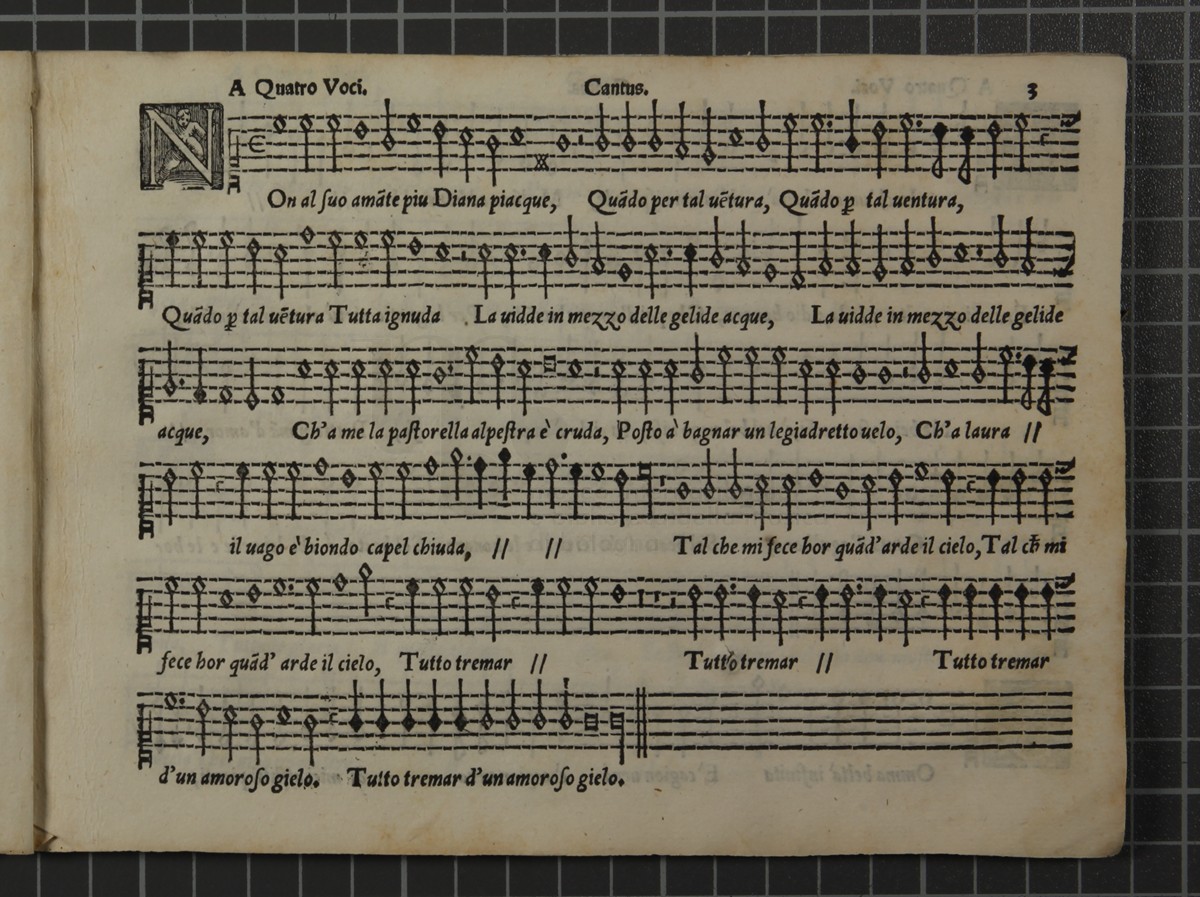 A Quatro Voci. Cantus. 3
NOn al ſuo amãte piu Diana piacque, Quãdo per tal uẽtura, Quãdo ꝑ tal uentura,
Quãdo ꝑ tal uẽtura Tutta ignuda La uidde in mezzo delle gelide acque, La uidde in mezzo delle gelide
acque, Ch'a me la paſtorella alpeſtra è cruda, Poſto à bagnar un legiadretto uelo, Ch'a laura //
il uago è biondo capel chiuda, // // Tal che mi fece hor quãd'arde il cielo, Tal cħ mi
fece hor quãd' arde il cielo, Tutto tremar // Tutto tremar // Tutto tremar
d'un amoroſo gielo. Tutto tremar d'un amoroſo gielo.